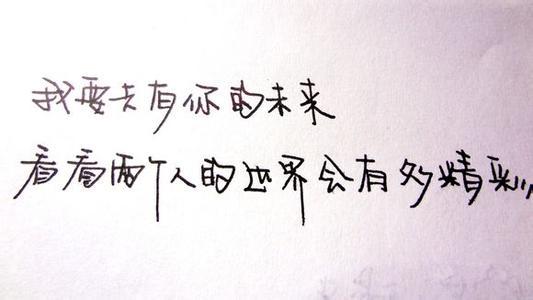 我要去有你的未来
看看两个人的世界会有多精彩